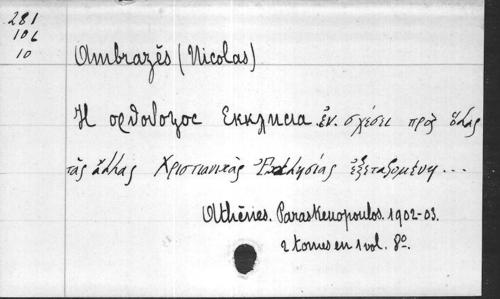 281
106
10
Ambrazēs (Nicolas)
Ἡ ορθοδοξος Εκκλησια ἐν σχέσει πρὸς ὅλας
τὰς ἄλλας Χριστιανικὰς Ἐκκλησίας ἐξεταζομένη ...
Athènes. Paraskeuopoulos. 1902-03.
2 tomes en 1 vol. 8º.